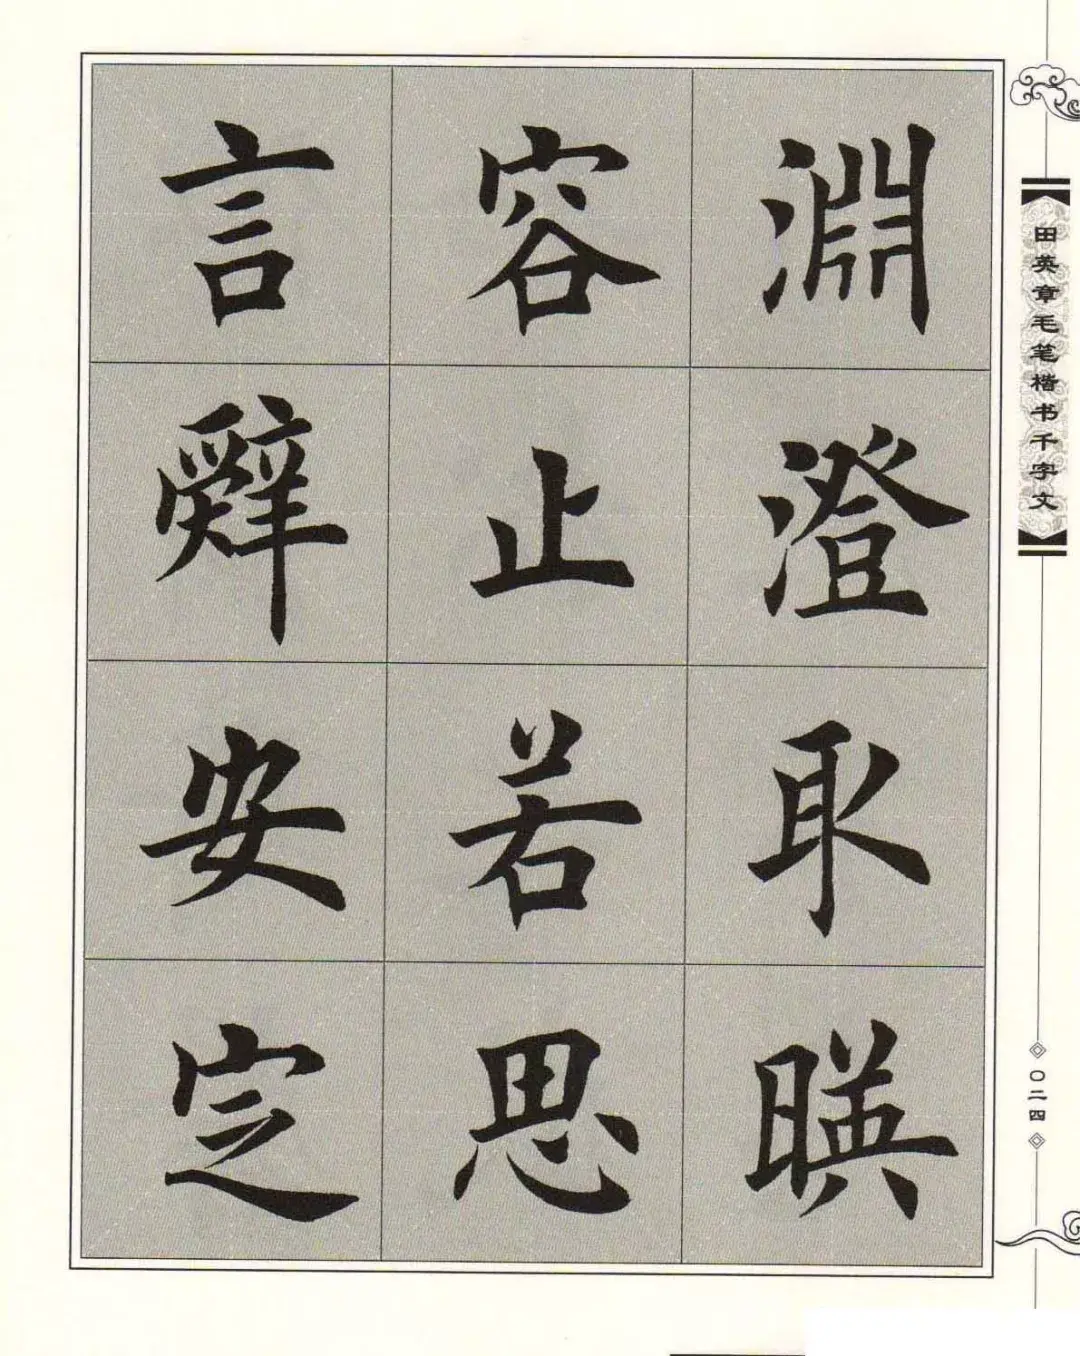 淵澄取暎
容止若思
言辭安定
田英章毛笔楷书千字文
〇二四